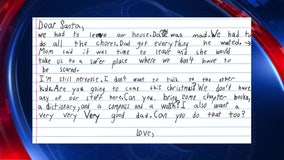 Dear Santa,
we had to leave our house. Dad was mad. We had to
do all the chores. Dad got everything he wanted.
Mom said it was time to leave and she would
take us to a safer place where we don't have to
be scared.
I'm still nervous. I don't want to talk to the other
kids. Are you going to come this christmas? We don't have
any of our stuff here. Can you bring some chapter books,
a dictionary, and a compass and a watch? I also want a
very very very good dad. Can you do that too?
Love,